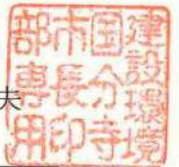 夫
建設環境
国分寺
市長印
部専用